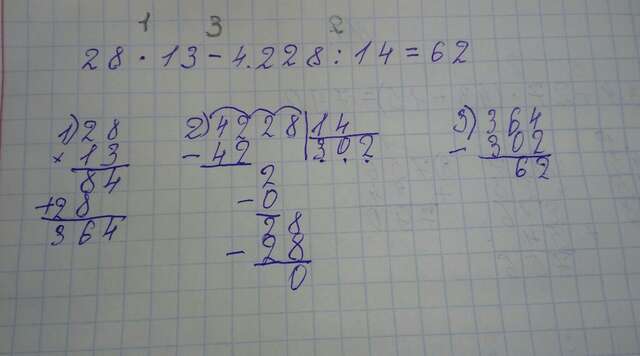 1 3 2
28 · 13 - 4.228 : 14 = 62
1) 28
× 13
84
+28
364
2) 4228 | 14
- 42 302
2
- 0
28
- 28
0
3) 364
- 302
62